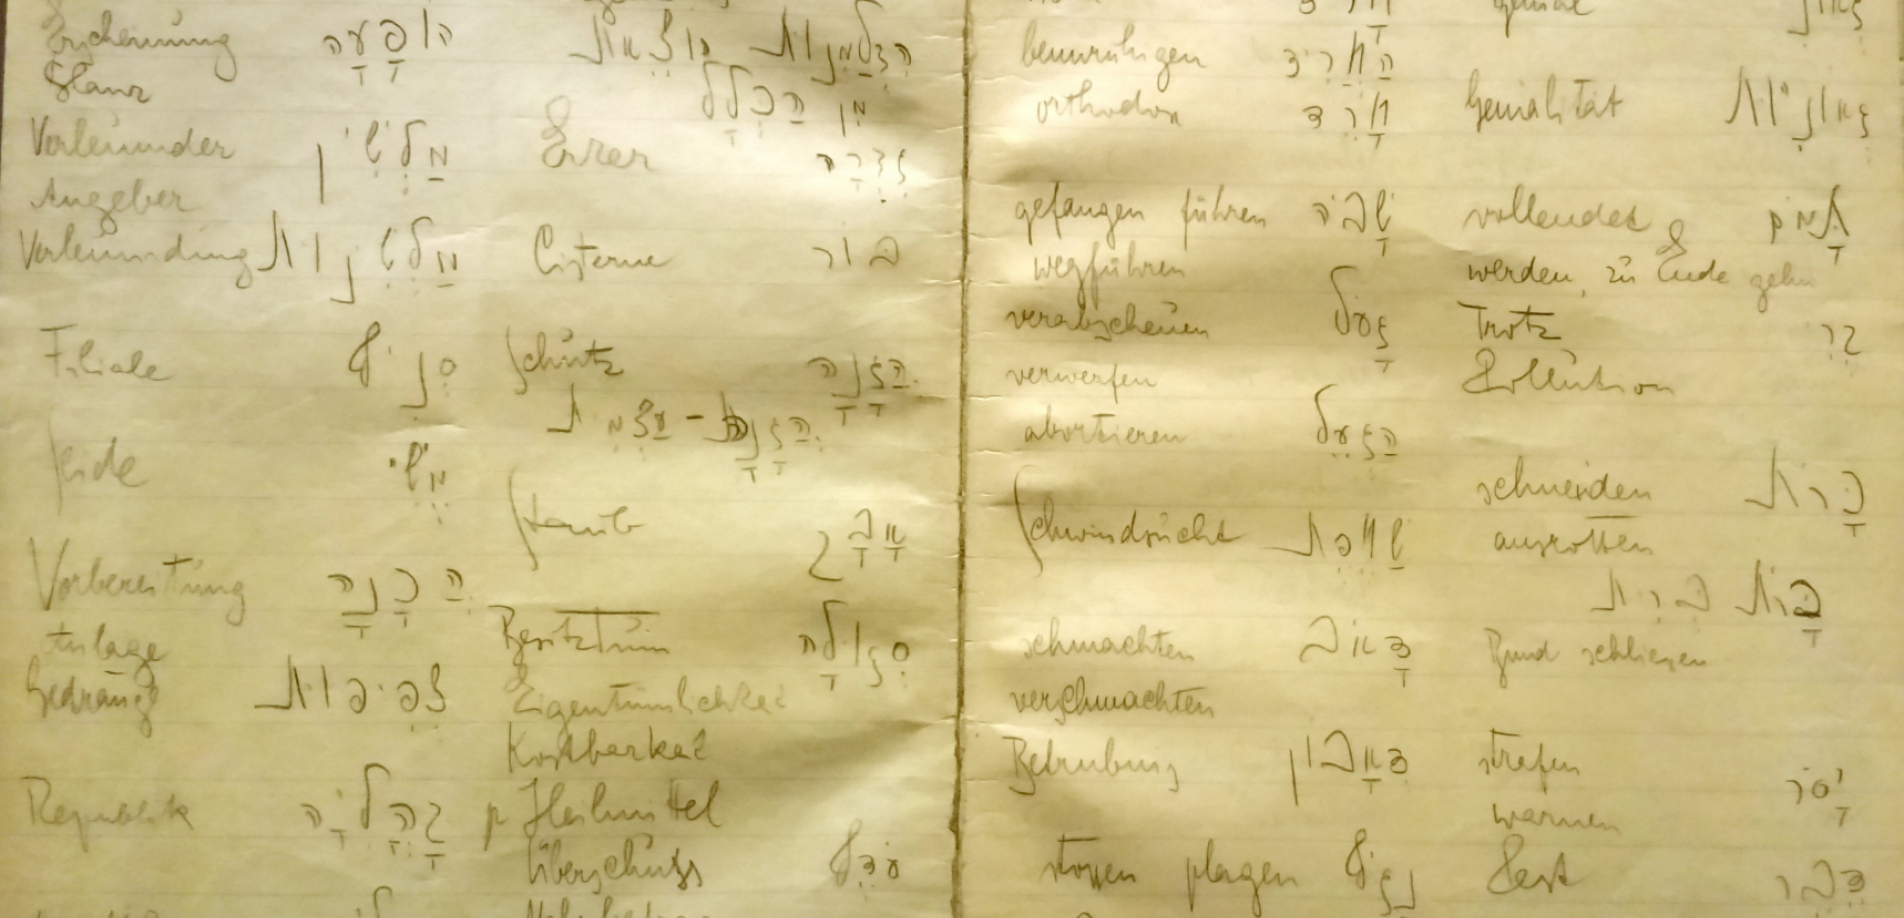 Erscheinung הופָעָה
Glanz
Verleumder מַלְשִין
Angeber
Verleumdung מַלְשִנות
Filiale סנִיף
Seide מֶשִי
Vorbereitung הֲכָנָה
Anlage
Gedränge צְפִיפות
Republik קְהִלִיָה
הִצְטַמְנות הוצֵאת
מִן הַכְלָל
Erker גִזְרָה
Cisterne בור
Schutz הֲגָנָה
הֲגָנַת-עַצְמִת
Staub אָבָק
Besitztum סְגולָה
Eigentümlichkeit
Kostbarkeit
Heilmittel
Überschuss עֹדֶף
beunruhigen הַחֲרִיד
orthodox חָרֵד
gefangen führen שָבֹה
wegführen
verabscheuen גָעל
verwerfen
abortieren הַגְעֵל
Schwindsucht שַחֶפֶת
schmachten דָאוב
verschmachten
Betrübung דְאָבון
stossen plagen נָגֹף
geniale גאון
Genialität גְאונִיות
vollendet תָמום
werden, zu Ende gehn
Trotz קרִ
Pollution
schneiden כָרות
ausrotten
כָרות בְרִית
Bund schliessen
strafen יָסֹר
warnen
Pest דֶבֶר